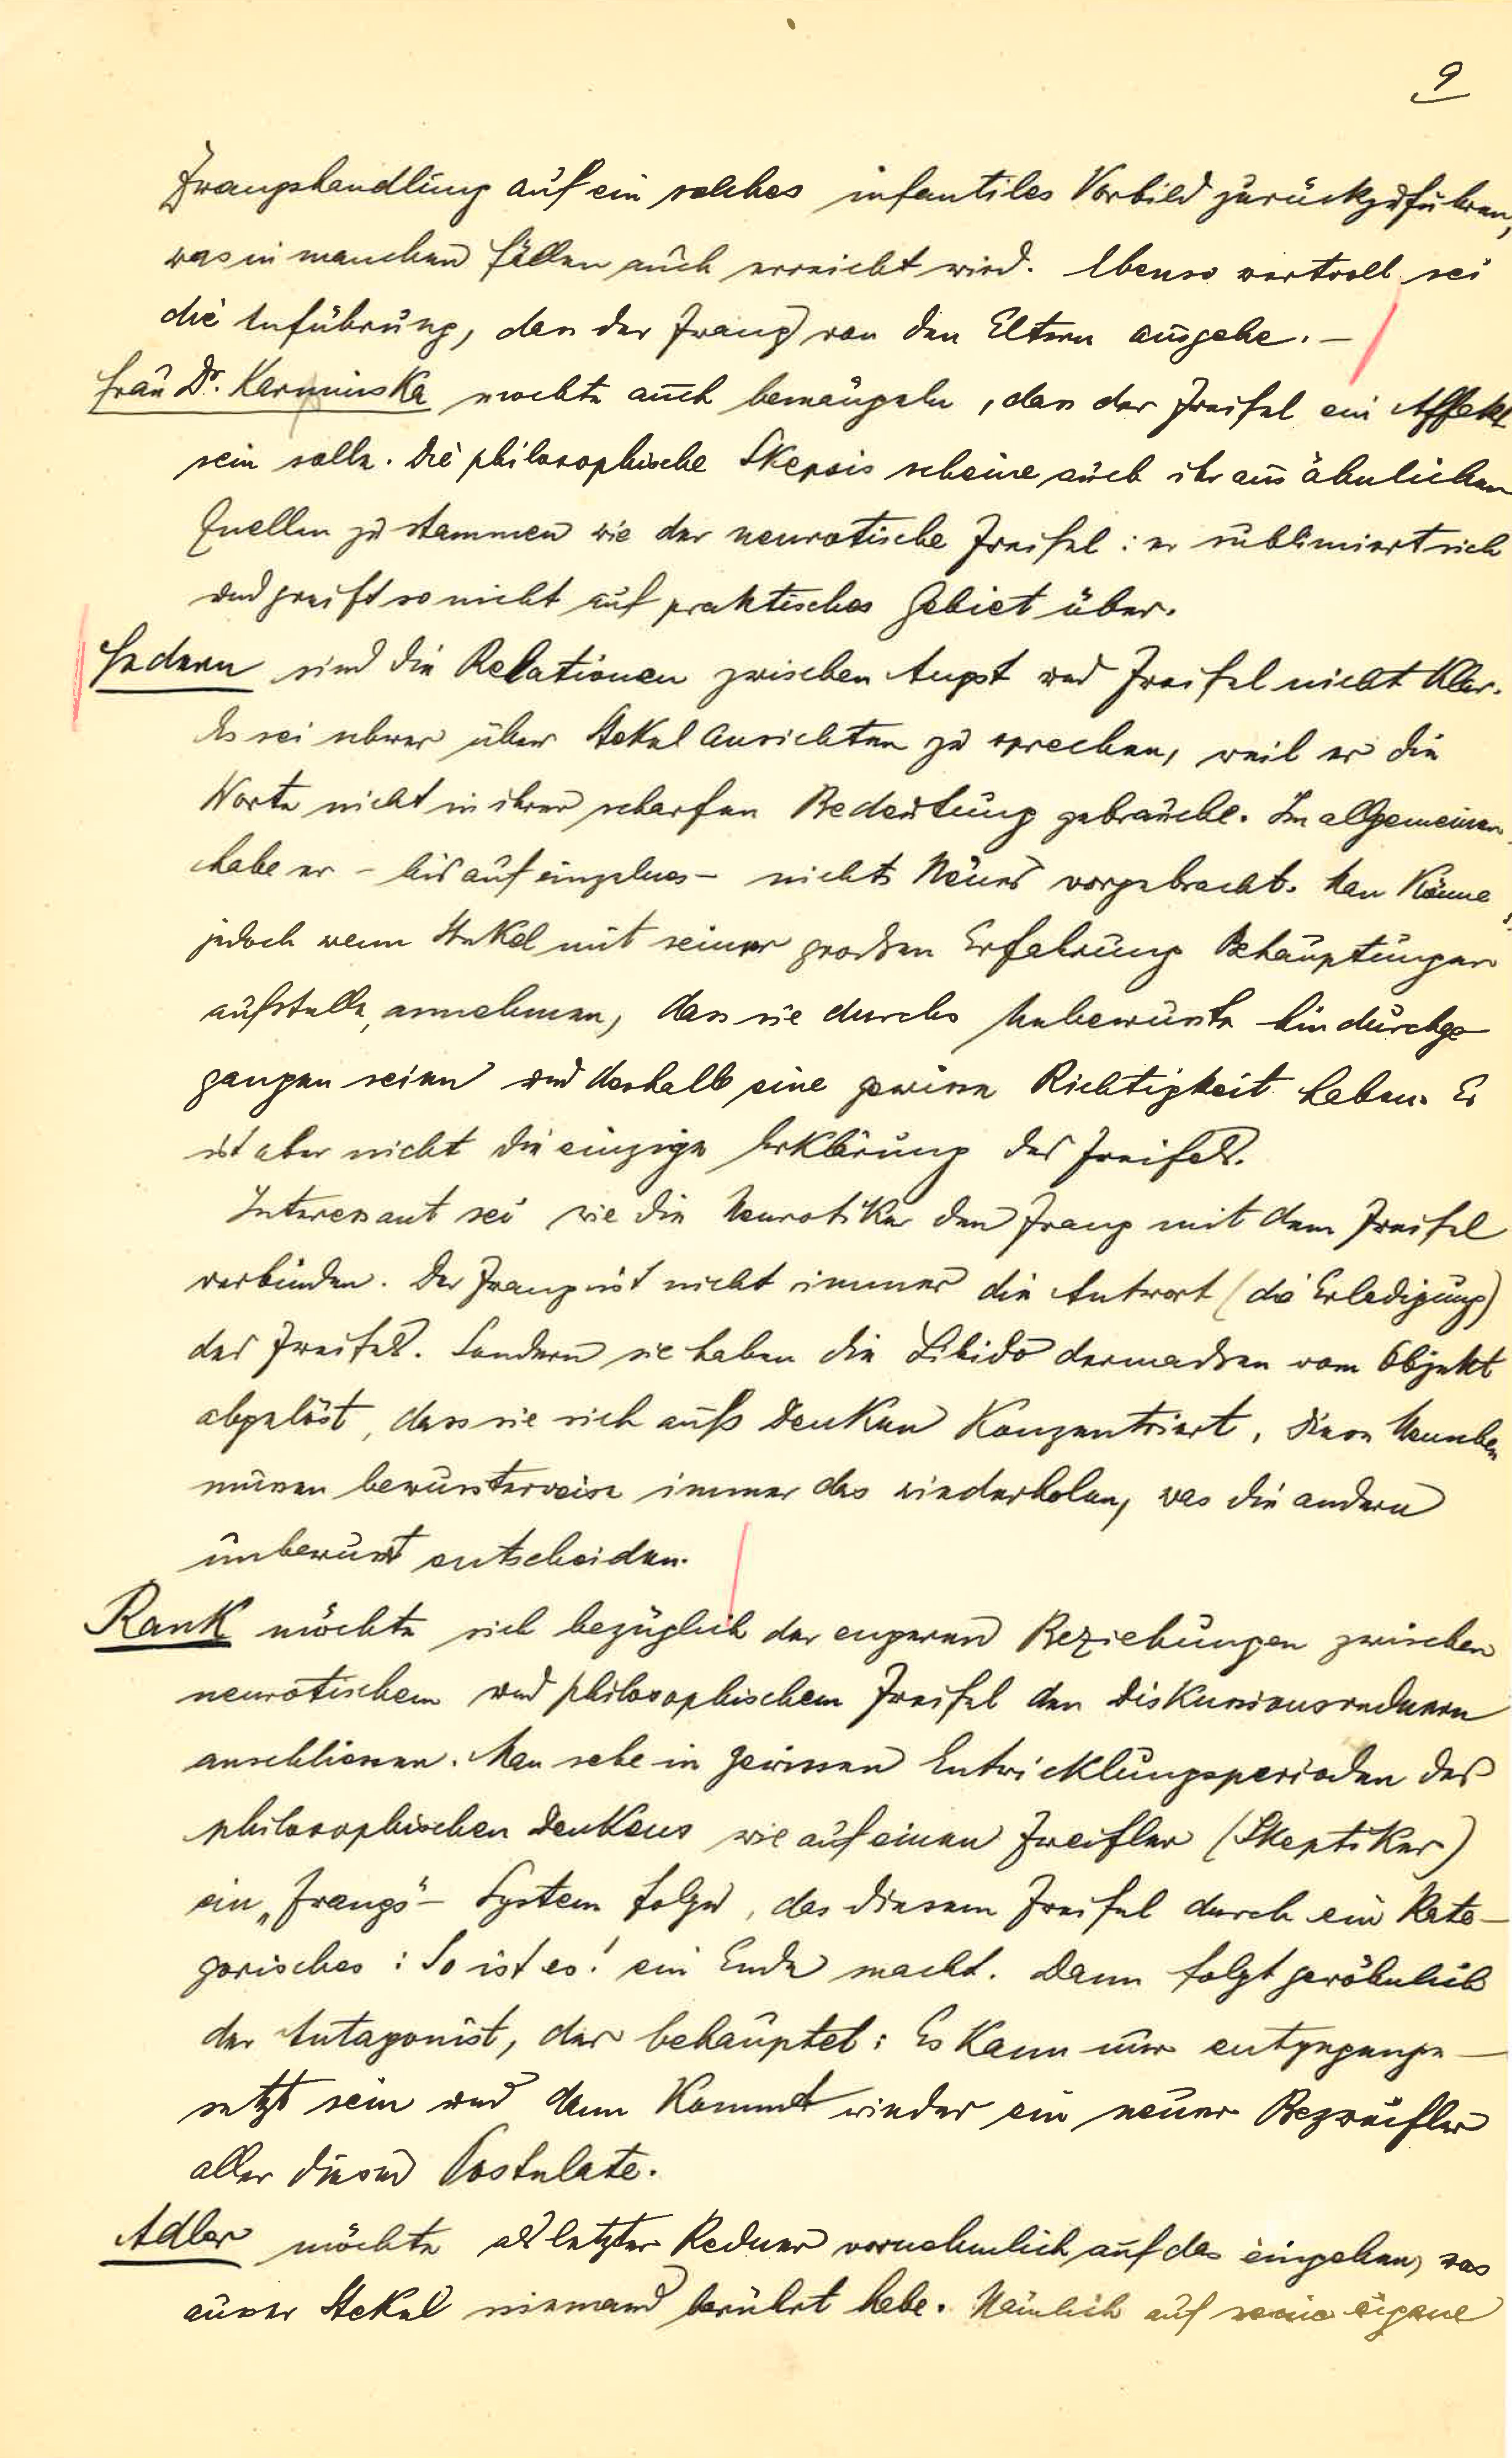 9
Zwangshandlung auf ein solches infantiles Vorbild zurückzuführen,
was in manchen Fällen auch erreicht wird. Ebenso wertvoll sei
die Anführung, dass der Zwang von den Eltern ausgehe. –
Frau Dr. Karminska möchte auch bemängeln, dass der Zweifel ein Affekt
sein solle. Die philosophische Skepsis scheine auch ihr aus ähnlichen
Quellen zu stammen wie der neurotische Zweifel: er sublimiert sich
und greift so nicht auf praktisches Gebiet über.
Federn sind die Relationen zwischen Angst und Zweifel nicht klar.
Es sei schwer über Stekel Ansichten zu sprechen, weil er die
Worte nicht in ihrer scharfen Bedeutung gebrauche. Im allgemeinen
habe er – bis auf einzelnes – nichts Neues vorgebracht. Man könne
jedoch wenn Stekel mit seiner grossen Erfahrung Behauptungen
aufstelle, annehmen, dass sie durchs Unbewusste hindurchge
gangen seien und deshalb eine gewisse Richtigkeit haben. Es
ist aber nicht die einzige Erklärung des Zweifels.
Interessant sei wie die Neurotiker den Zwang mit dem Zweifel
verbinden. Der Zwang ist nicht immer die Antwort (die Erledigung)
des Zweifels. Sondern sie haben die Libido dermassen vom Objekt
abgelöst, dass sie sich aufs Denken konzentriert, diese Menschen
müssen bewussterweise immer das wiederholen, was die andern
unbewusst entscheiden.
Rank möchte sich bezüglich der engeren Beziehungen zwischen
neurotischem und philosophischem Zweifel den Diskussionsrednern
anschliessen. Man sehe in gewissen Entwicklungsperioden des
philosophischen Denkens wie auf einen Zweifler (Skeptiker)
ein „Zwangs"– System folge, das diesem Zweifel durch ein Kate–
gorisches: So ist es! ein Ende macht. Dann folgt gewöhnlich
der Antagonist, der behauptet: Es kann nur entgegenge–
setzt sein und dann kommt wieder ein neuer Bezweifler
aller dieser Postulate.
Adler möchte als letzter Redner vornehmlich auf das eingehen, was
ausser Stekel niemand berührt habe. Nämlich auf seine eigene